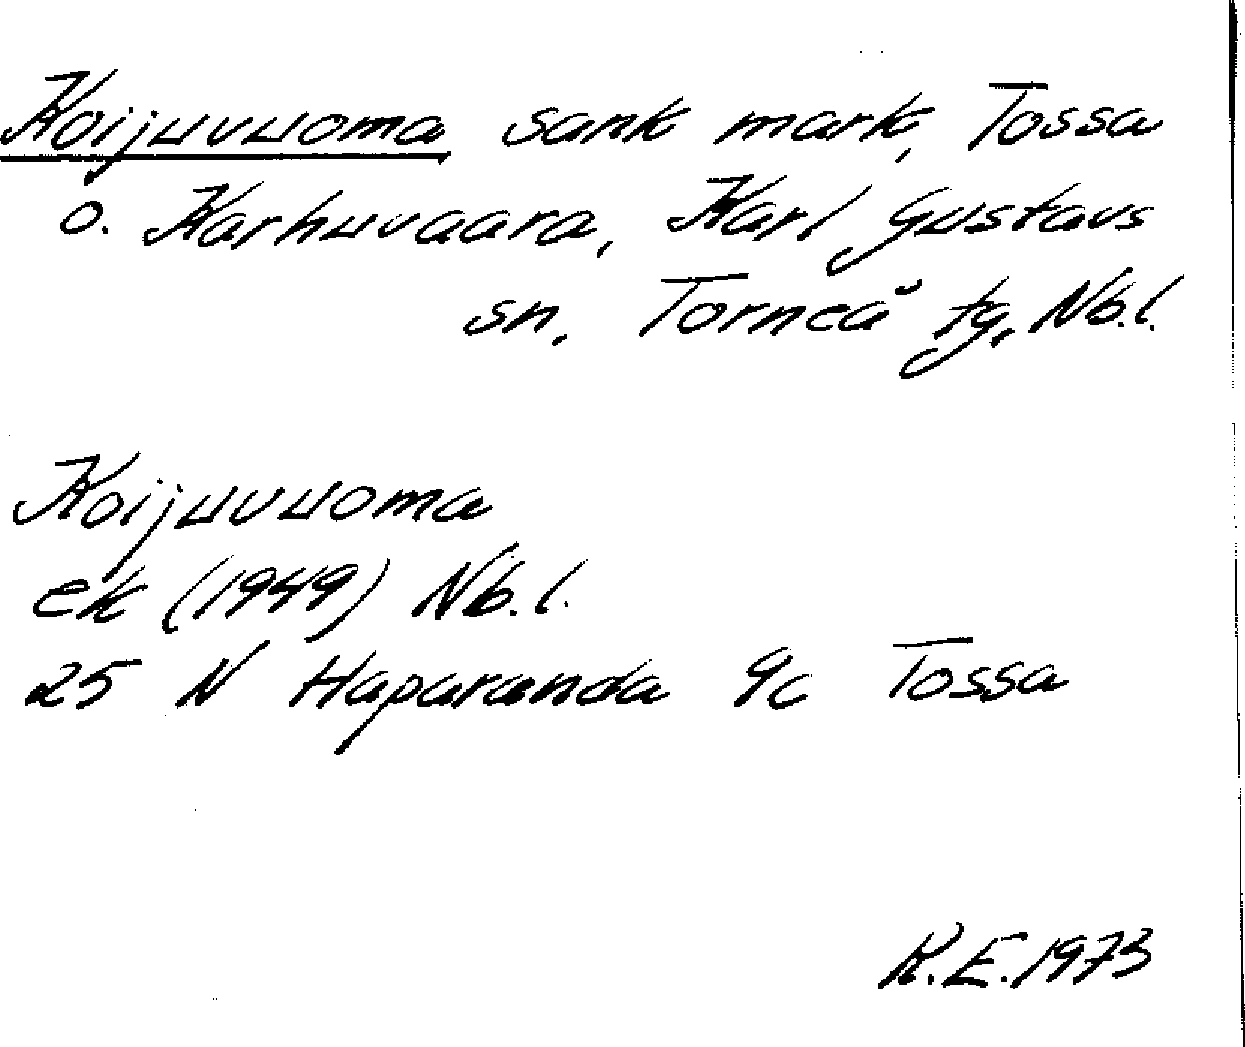 Koijuvuoma sank mark, Tossa
o. Karhuvaara, Karl Gustavs
sn, Torneå tg, Nb.l.
Koijuvuoma
ek (1949) Nb.l.
25 N Haparanda 9c Tossa
K.E. 1973